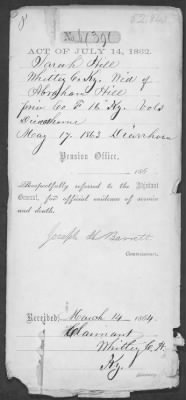 ACT OF JULY 14, 1862.
Sarah Hill
Whitley Co. Ky. Wid of
Abraham Hill
priv Co F 16 Ky. Vols
Died at home
May 17. 1863 Diarrhoea
Pension Office,
186
Respectfully referred to the Adjutant
General, for official evidence of service
and death.
Joseph H Barrett
Commissioner.
Received, March 14, 1864.
Claimant
Whitley C. H.
Ky.